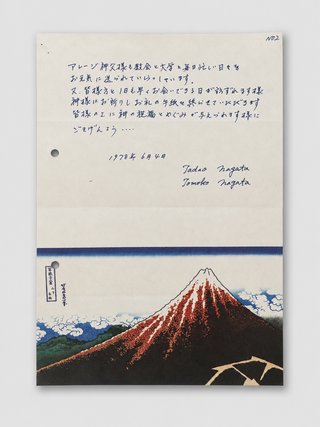 NO.2
アレーン神父様も教会と大学と毎日忙しい日々を
お元気に送られていらっしゃいます。
又、皆様方と1日も早くお会いできる日が訪ずれます様
神様にお祈りしお礼の手紙を終らせていただきます
皆様の上に神の祝福とめぐみが与えられます様に
ごきげんよう・・・・
1978年6月4日
Tadao Nagata
Tomoko Nagata